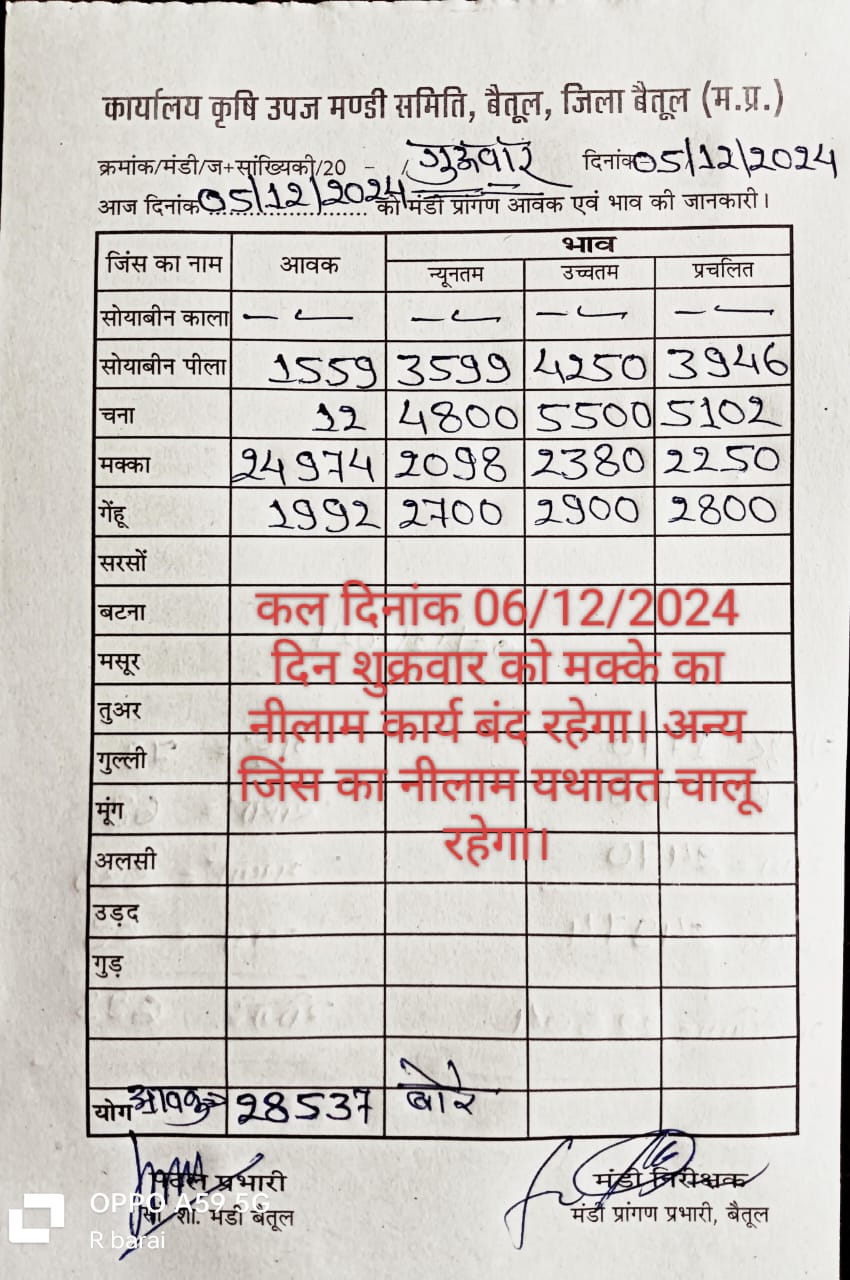 कार्यालय कृषि उपज मण्डी समिति, बैतूल, जिला बैतूल (म.प्र.)
क्रमांक/मंडी/ज+सांख्यिकी/20 - / गुरूवार दिनांक 05/12/2024
आज दिनांक 05/12/2024 को मंडी प्रांगण आवक एवं भाव की जानकारी।
जिंस का नाम आवक भाव
न्यूनतम उच्चतम प्रचलित
सोयाबीन काला — — — —
सोयाबीन पीला 1559 3599 4250 3946
चना 12 4800 5500 5102
मक्का 24974 2098 2380 2250
गेंहू 1992 2700 2900 2800
सरसों
बटना
मसूर
तुअर
गुल्ली
मूंग
अलसी
उड़द
गुड़
कल दिनांक 06/12/2024
दिन शुक्रवार को मक्के का
नीलाम कार्य बंद रहेगा। अन्य
जिंस का नीलाम यथावत चालू
रहेगा।
योग आवक 28537 बोरे
प्रभारी मंडी निरीक्षक
सां. शा. मंडी बैतूल मंडी प्रांगण प्रभारी, बैतूल
OPPO A59 5G
R barai